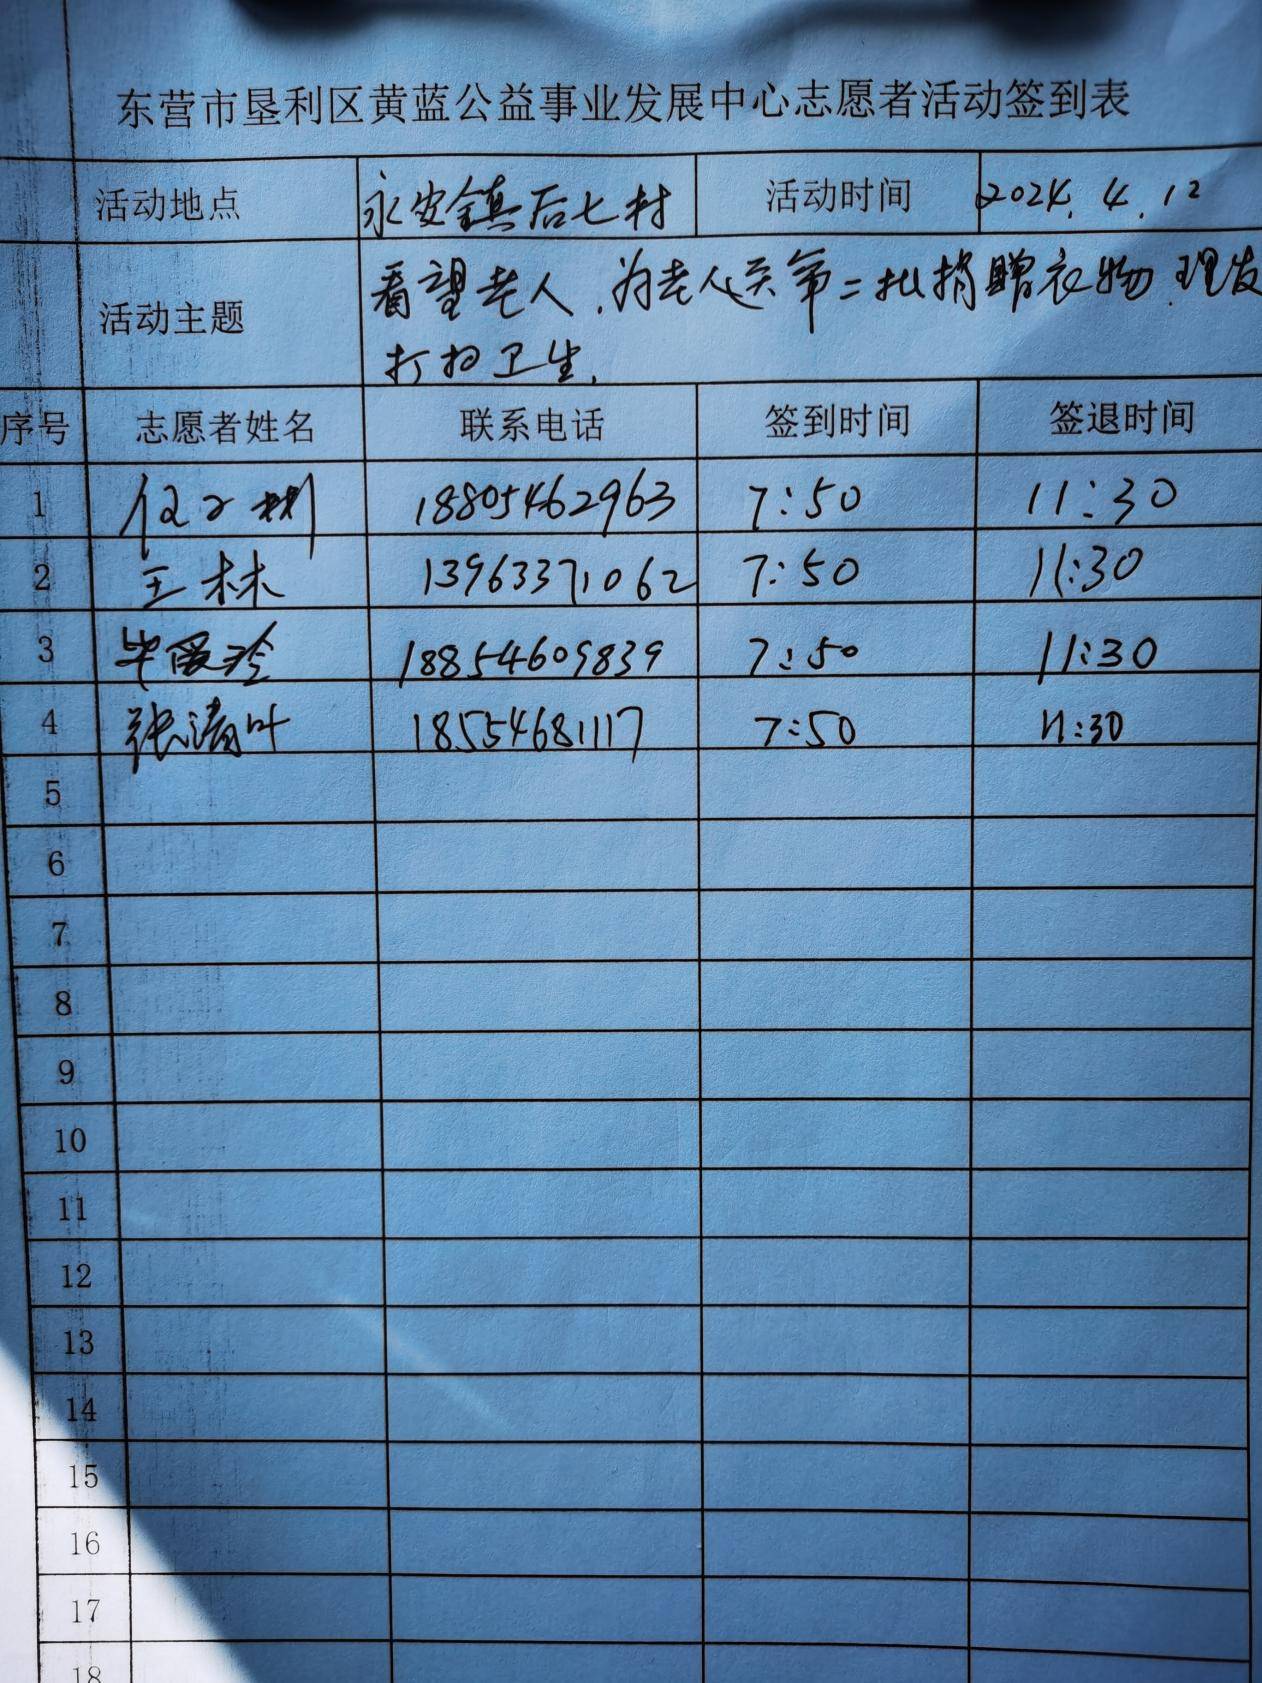 东营市垦利区黄蓝公益事业发展中心志愿者活动签到表
活动地点 永安镇后七村 活动时间 2024.4.12
活动主题 看望老人,为老人送第二批捐赠衣物.理发
打扫卫生.
序号 志愿者姓名 联系电话 签到时间 签退时间
1 18805462963 7:50 11:30
2 王林 13963371062 7:50 11:30
3 18854609839 7:50 11:30
4 张清叶 18554681117 7:50 11:30
5
6
7
8
9
10
11
12
13
14
15
16
17
18